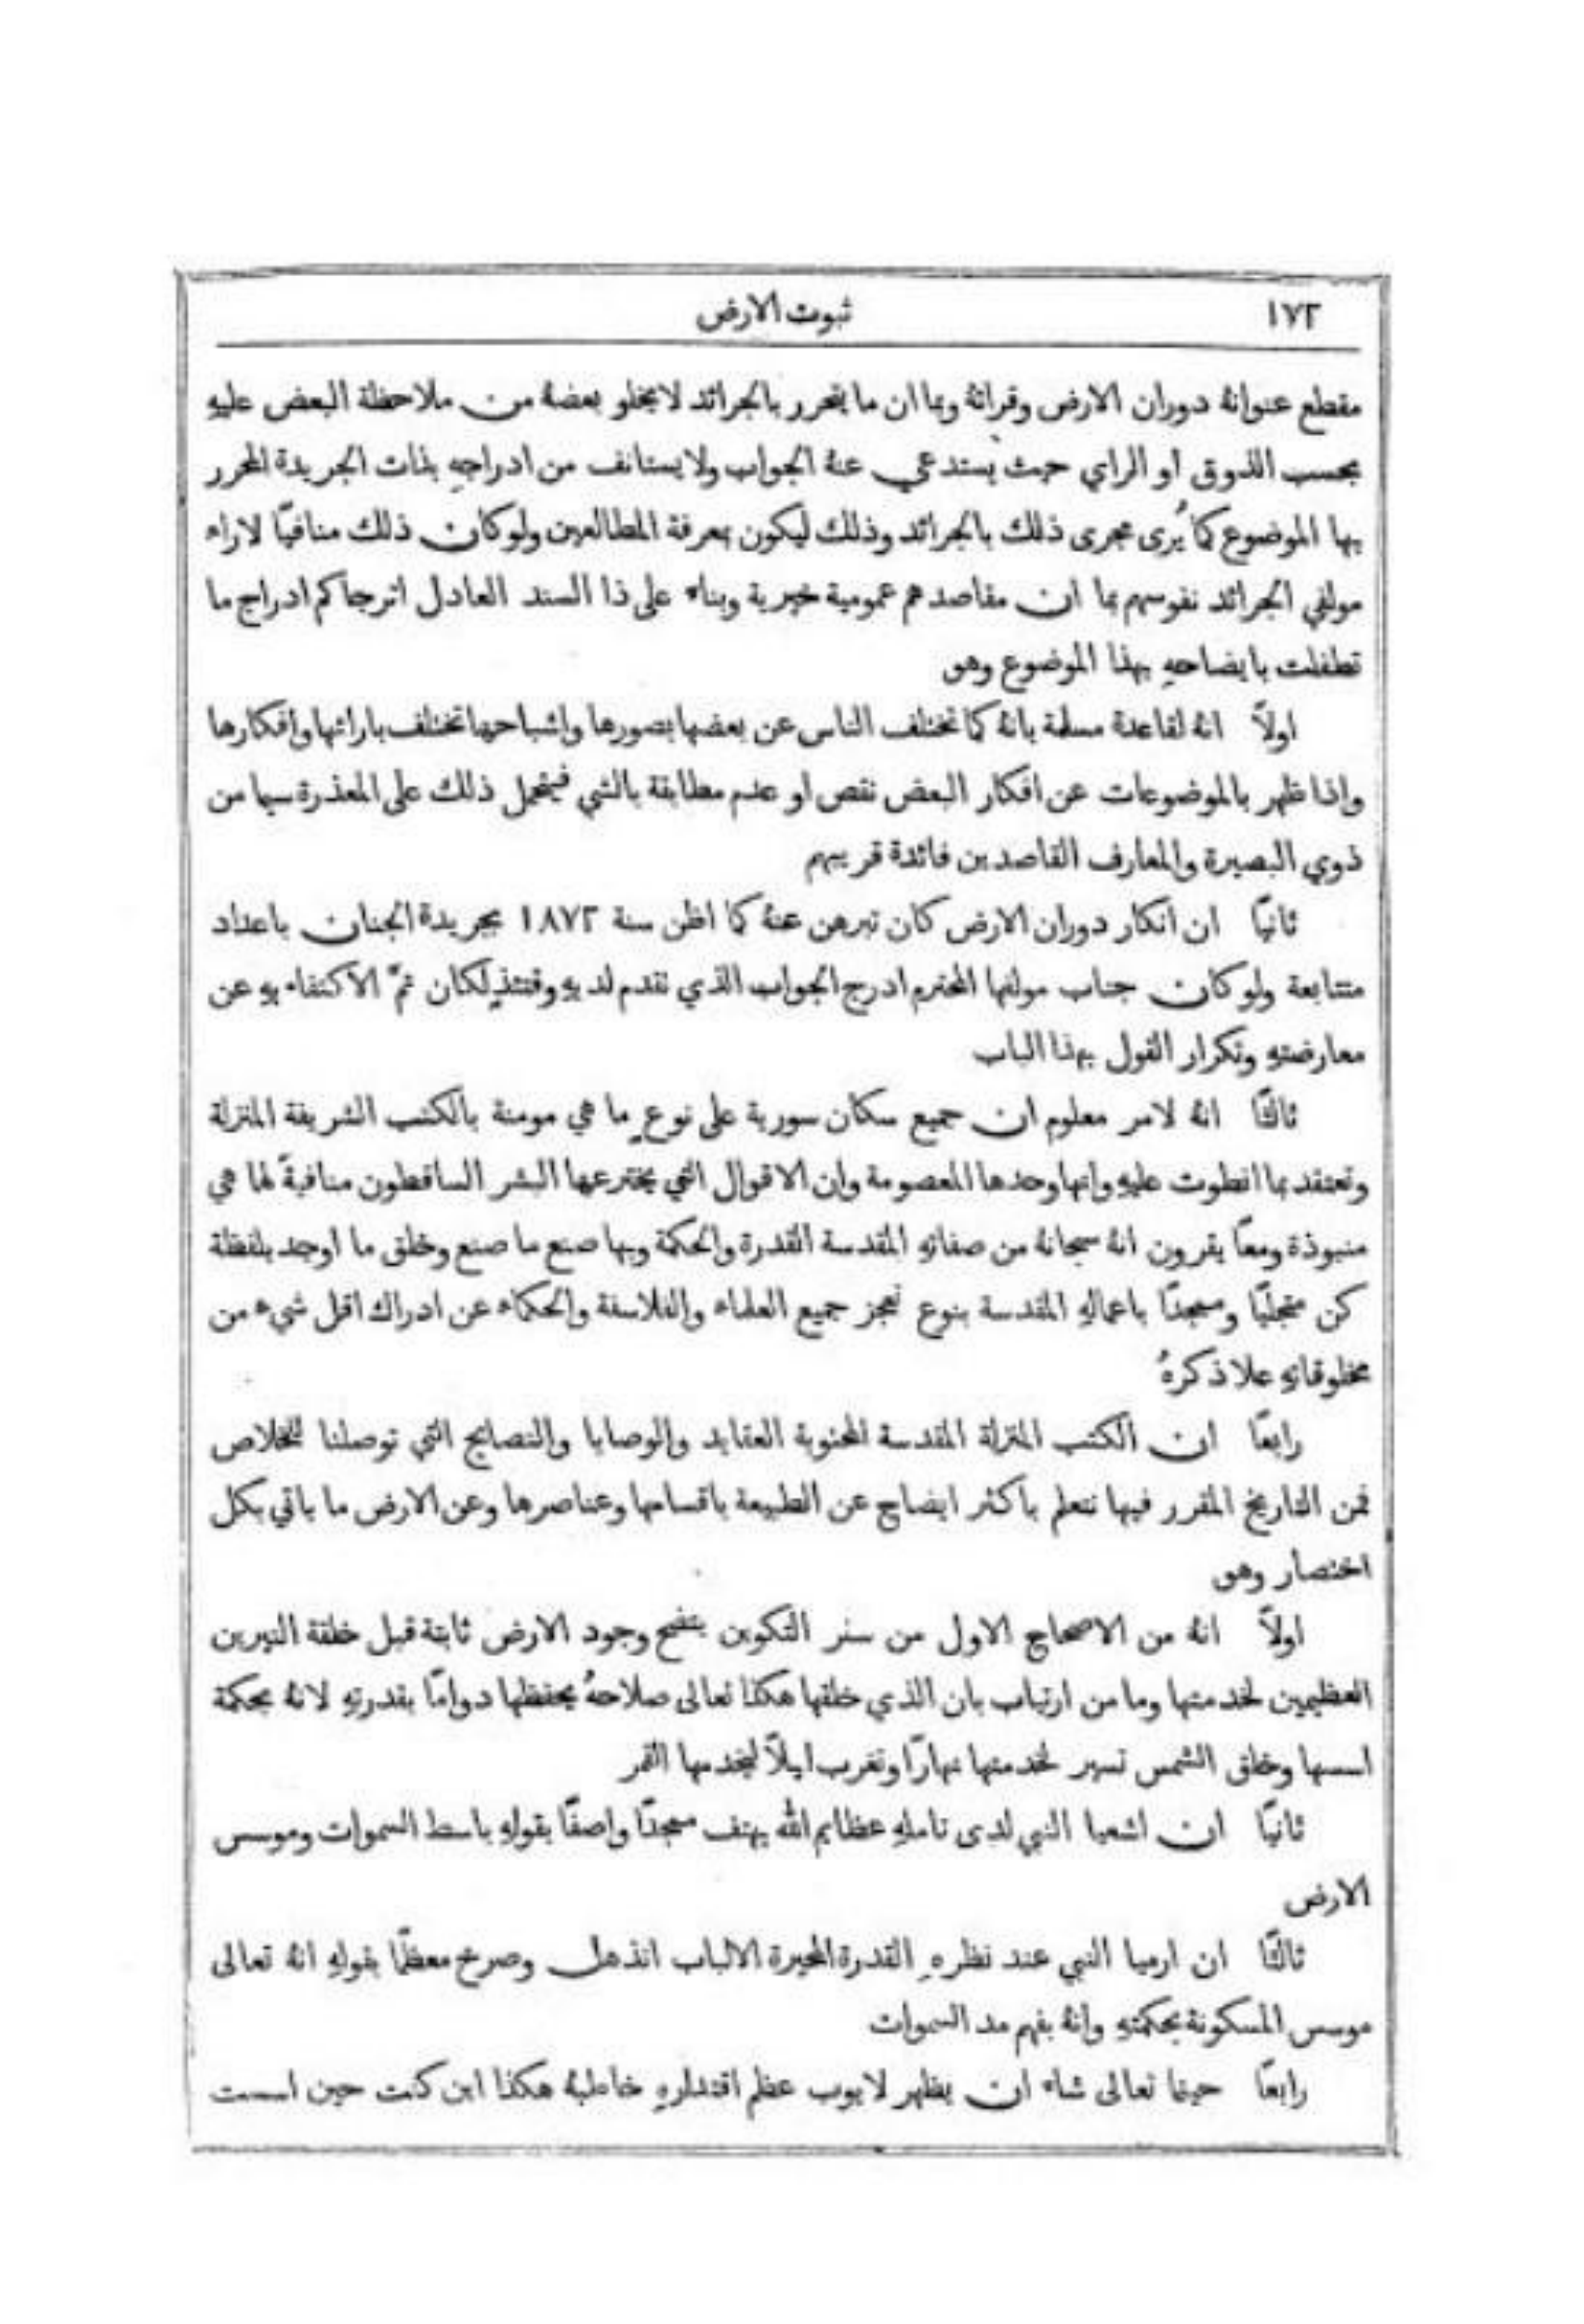 ١٧٢
ثبوت الارض
مقطع عنوانهُ دوران الارض وقرائهُ وبما ان ما يتحرر بالجرائد لا يخلو بعضهُ من ملاحظة البعض عليهِ
بحسب الذوق او الراي حيث يستدعي عنهُ الجواب ولا يستانف من ادراجهِ بذات الجريدة المحرر
بها الموضوع كما يُرى مجرى ذلك بالجرائد وذلك ليكون بمعرفة المطالعين ولو كان ذلك منافيًا لاراء
مولفي الجرائد نفوسهم بما ان مقاصدهم عمومية خيرية وبناء على ذا السند العادل اترجاكم ادراج ما
تطفلت بايضاحهِ بهذا الموضوع وهو
اولًا انهُ لقاعدة مسلمة بانهُ كما تختلف الناس عن بعضها بصورها واشباحها تختلف بارائها وافكارها
واذا ظهر بالموضوعات عن افكار البعض نقص او عدم مطابقة بالشي فيُحمل ذلك على المعذرة سيما من
ذوي البصيرة والمعارف القاصدين فائدة قريبهم
ثانيًا ان انكار دوران الارض كان تبرهن عنهُ كما اظن سنة ١٨٧٢ بجريدة الجنان باعداد
متتابعة ولو كان جناب مولفها المحترم ادرج الجواب الذي تقدم لديهِ وقتئذٍ لكان تمَّ الاكتفاء بهِ عن
معارضتهِ وتكرار القول بهذا الباب
ثالثًا انهُ لامر معلوم ان جميع سكان سورية على نوعٍ ما هي مومنة بالكتب الشريفة المنزلة
وتعتقد بما انطوت عليهِ وانها وحدها المعصومة وان الاقوال التي يخترعها البشر الساقطون منافيةً لها هي
منبوذة ومعًا يقرون انهُ سبحانهُ من صفاتهِ المقدسة القدرة والحكمة وبها صنع ما صنع وخلق ما اوجد بلفظة
كن متجليًا وممجدًا باعمالهِ المقدسة بنوع تعجز جميع العلماء والفلاسفة والحكماء عن ادراك اقل شيء من
مخلوقاتهِ علا ذكرهُ
رابعًا ان الكتب المنزلة المقدسة المحتوية العقايد والوصايا والنصايح التي توصلنا للخلاص
فمن التاريخ المقرر فيها نتعلم باكثر ايضاح عن الطبيعة باقسامها وعناصرها وعن الارض ما ياتي بكل
اختصار وهو
اولًا انهُ من الاصحاح الاول من سفر التكوين يتضح وجود الارض ثابتة قبل خلقة النيرين
العظيمين لخدمتها وما من ارتياب بان الذي خلقها هكذا تعالى صلاحهُ يحفظها دوامًا بقدرتهِ لانهُ بحكمة
اسسها وخلق الشمس تسير لخدمتها نهارًا وتغرب ليلًا ليخدمها القمر
ثانيًا ان اشعيا النبي لدى تاملهِ عظايم الله يهتف ممجدًا واصفًا بقولهِ باسط السموات وموسس
الارض
ثالثًا ان ارميا النبي عند نظرهِ القدرة المحيرة الالباب انذهل وصرخ معظمًا بقولهِ انهُ تعالى
موسس المسكونة بحكمتهِ وانهُ بفهم مد السموات
رابعًا حينما تعالى شاء ان يظهر لايوب عظم اقتدارهِ خاطبهُ هكذا اين كنت حين اسست